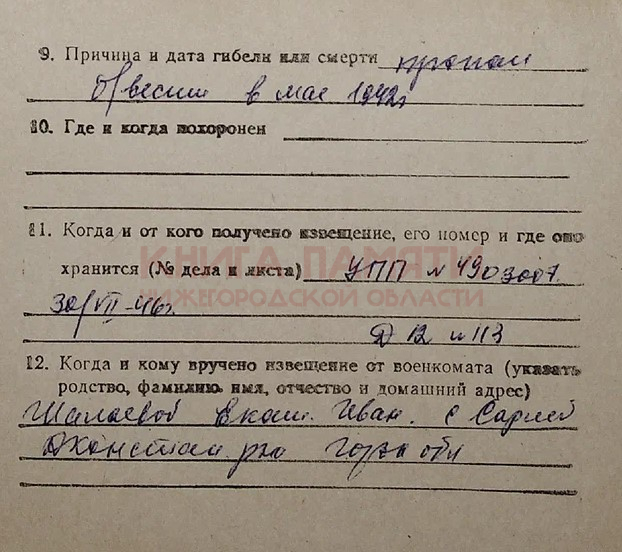 9. Причина и дата гибели или смерти пропал
б/вести в мае 1942г
10. Где и когда похоронен
11. Когда и от кого получено извещение, его номер и где оно
КНИГА ПАМЯТИ
хранится (№ дела и листа) УПП № 4903007
НИЖЕГОРОДСКОЙ ОБЛАСТИ
30/VII-46г.
Д 12 л 113
12. Когда и кому вручено извещение от военкомата (указать
родство, фамилию, имя, отчество и домашний адрес)
Шалаевой Екат. Иван. с
рна Горьк обл